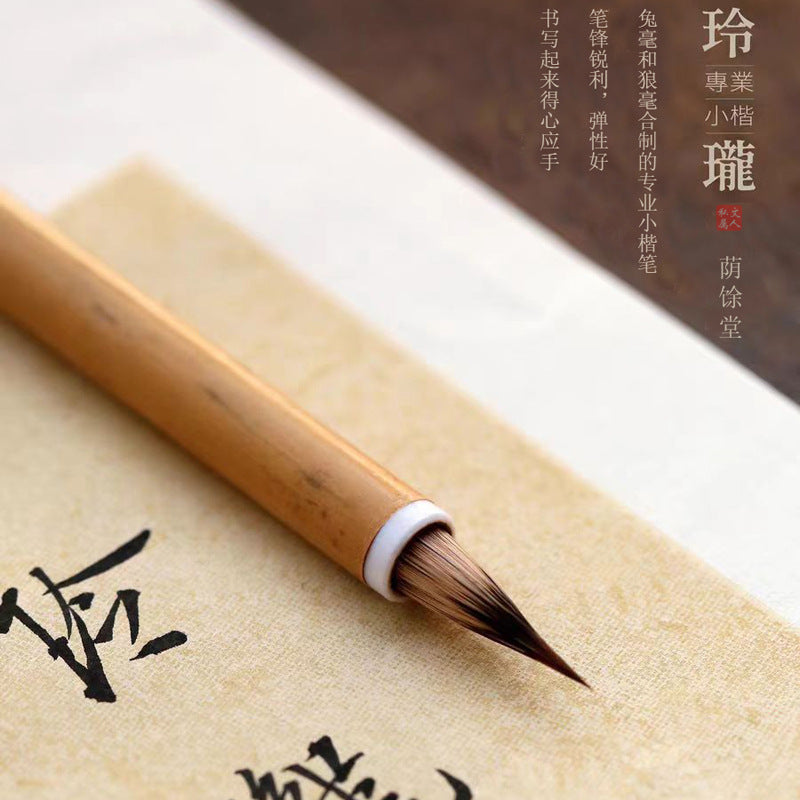 玲
專業
小楷
瓏
文人
私属
荫馀堂
兔毫和狼毫合制的专业小楷笔
笔锋锐利，弹性好
书写起来得心应手